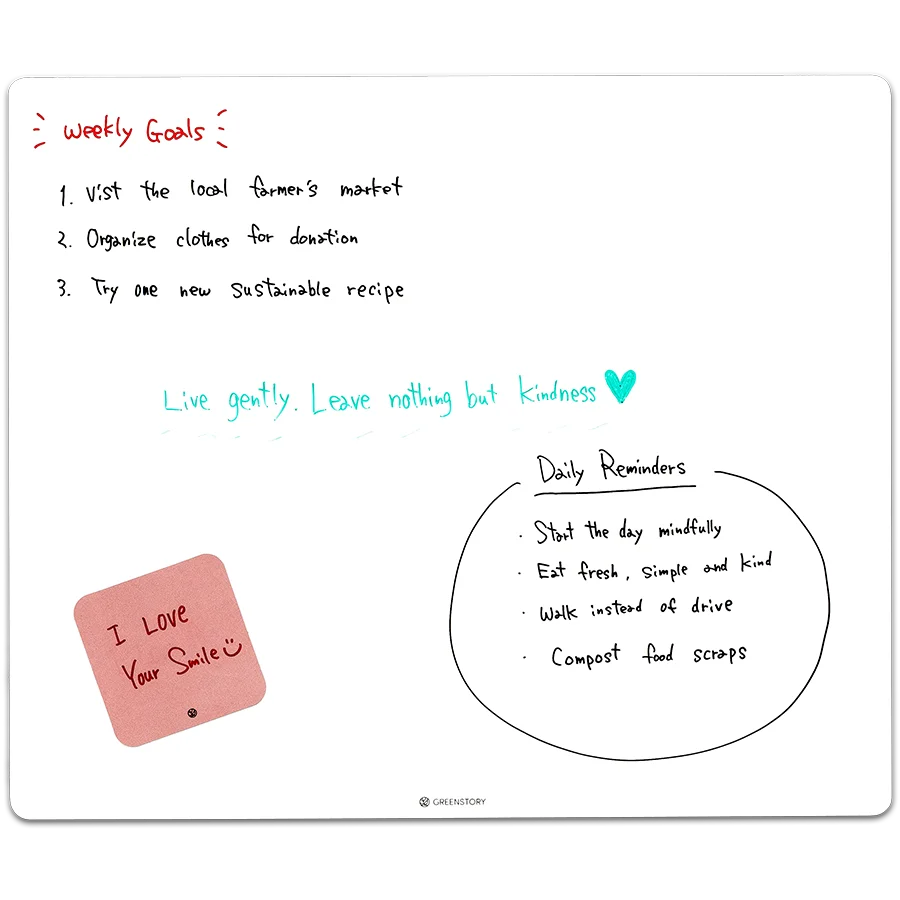 Weekly Goals
1. Vist the local farmer's market
2. Organize clothes for donation
3. Try one new sustainable recipe
Live gently. Leave nothing but kindness
Daily Reminders
· Start the day mindfully
· Eat fresh, simple and kind
· Walk instead of drive
· Compost food scraps
I Love
Your Smile
GREENSTORY